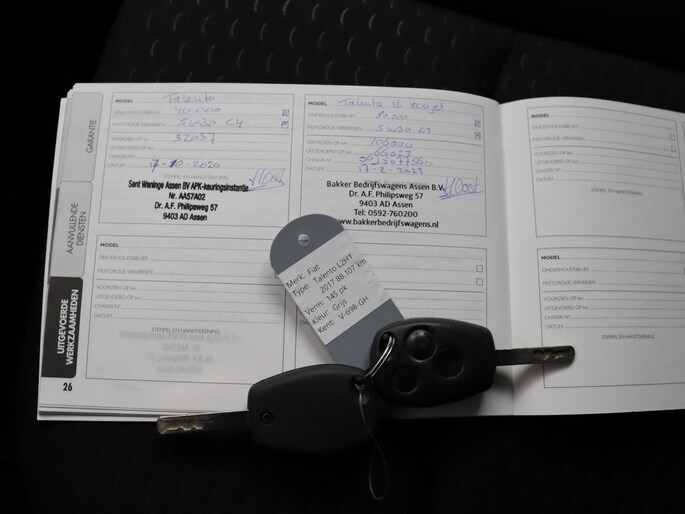 GARANTIE
AANVULLENDE
DIENSTEN
UITGEVOERDE
WERKZAAMHEDEN
26
MODEL Talento
ONDERHOUDSBEURT 40.000
MOTOROLIE VERVERSEN 5W30 C4
VOORZIEN OP km
UITGEVOERD OP km 32037
CHASSIS N°
DATUM 17-10-2020
STEMPEL EN HANDTEKENING
Sent Waninge Assen BV APK-keuringsinstantie
Nr. AA57A02
Dr. A.F. Philipsweg 57
9403 AD Assen
MODEL Talento 16 ecojet
ONDERHOUDSBEURT
MOTOROLIE VERVERSEN 5W30 C3
VOORZIEN OP km 100000
UITGEVOERD OP km
CHASSIS N°
DATUM 17-2-2023
Bakker Bedrijfswagens Assen B.V.
Dr. A.F. Philipsweg 57
9403 AD Assen
Tel: 0592-760200
www.bakkerbedrijfswagens.nl
MODEL
ONDERHOUDSBEURT
MOTOROLIE VERVERSEN
VOORZIEN OP km
UITGEVOERD OP km
CHASSIS N°
DATUM
STEMPEL EN HANDTEKENING
MODEL
ONDERHOUDSBEURT
MOTOROLIE VERVERSEN
VOORZIEN OP km
UITGEVOERD OP km
CHASSIS N°
DATUM
STEMPEL EN HANDTEKENING
MODEL
MODEL
ONDERHOUDSBEURT
MOTOROLIE VERVERSEN
VOORZIEN OP km
UITGEVOERD OP km
CHASSIS N°
DATUM
STEMPEL EN HANDTEKENING
Merk: Fiat
Type: Talento L2H1
2017 88.107 km
Verm: 145 pk
Kleur: Grijs
Kent: V-698-GH